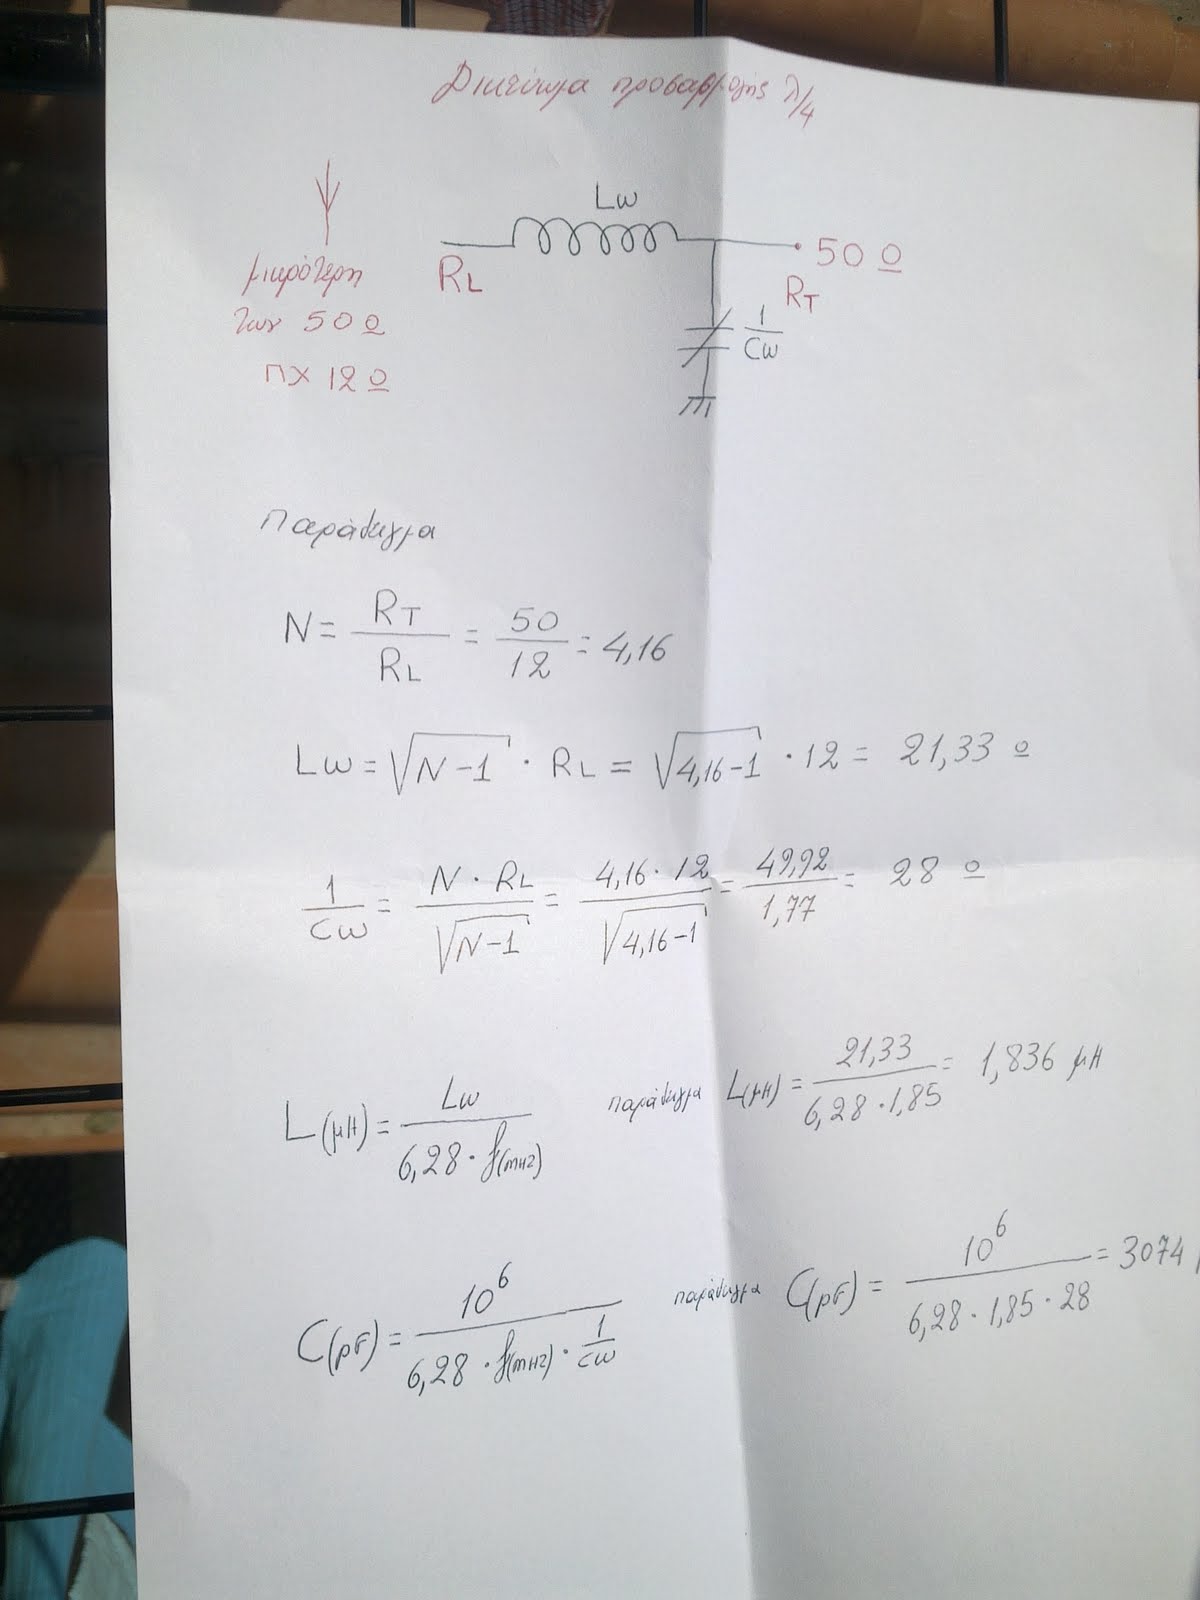 Δικτύωμα προσαρμογής λ/4
Lω
RL
50 Ω
RT
1/Cω
μικρότερη
των 50 Ω
ΠΧ 12 Ω
Παράδειγμα
N = RT/RL = 50/12 = 4,16
Lω = √(N-1) · RL = √(4,16-1) · 12 = 21,33 Ω
1/Cω = N · RL/√(N-1) = 4,16 · 12/√(4,16-1) = 49,92/1,77 = 28 Ω
L(μH) = Lω/6,28 · f(MHz) παράδειγμα L(μH) = 21,33/6,28 · 1,85 = 1,836 μH
C(pF) = 10^6/6,28 · f(MHz) · 1/Cω παράδειγμα C(pF) = 10^6/6,28 · 1,85 · 28 = 3074